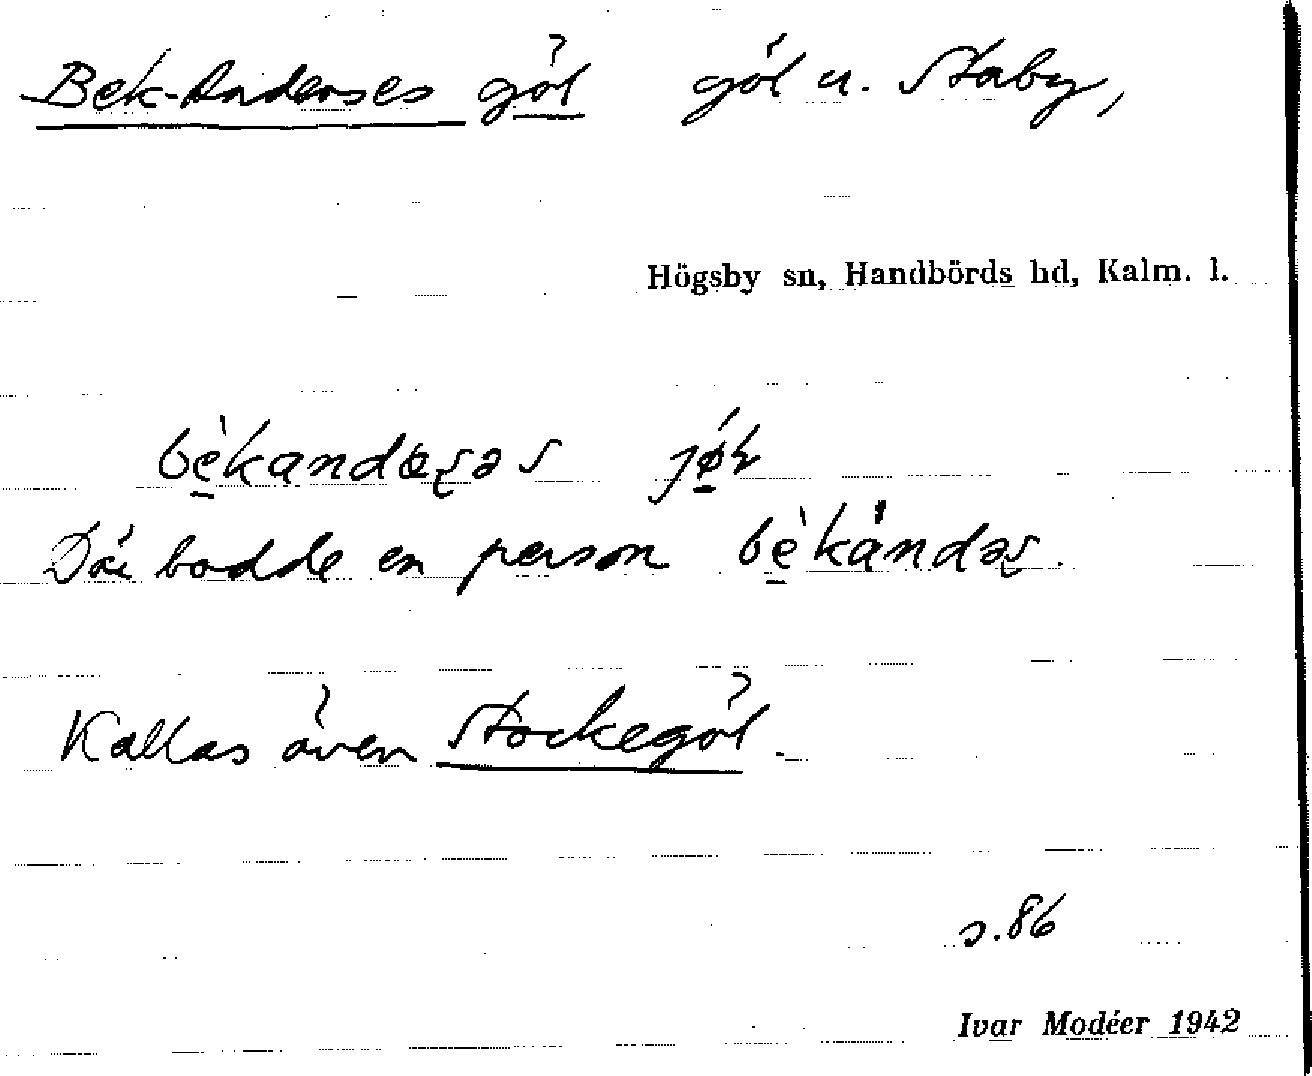 Bek-Anderses göl göl u. Staby,
Högsby sn, Handbörds hd, Kalm. l.
bèkandæʂəs jǿɫ
Där bodde en person bèkándəʂ.
Kallas även Stockegöl.
s. 86
Ivar Modéer 1942